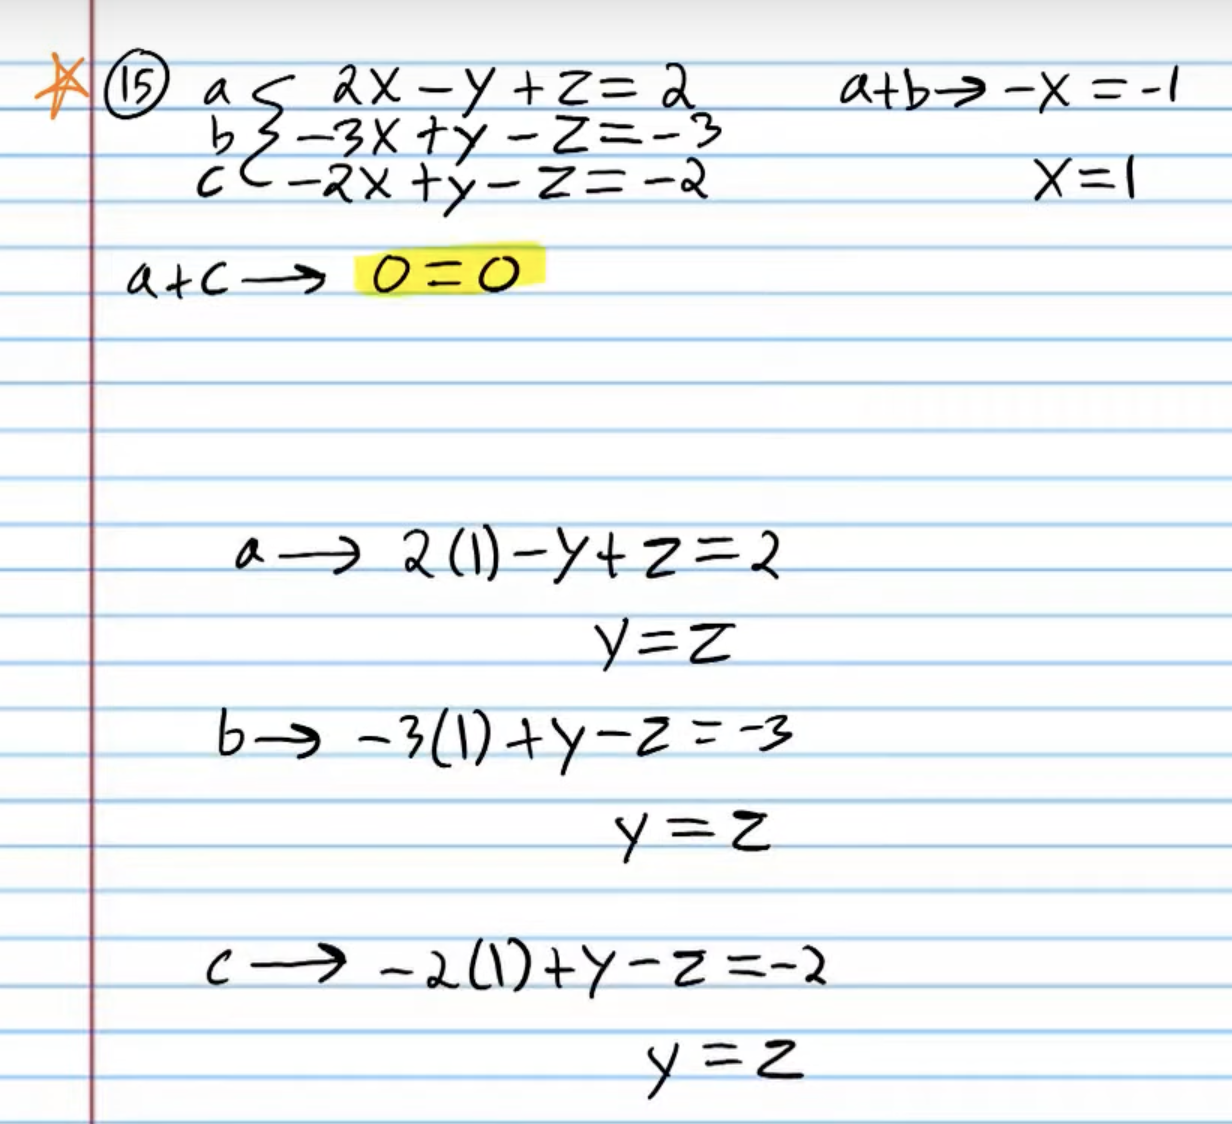 15 a { 2x - y + z = 2 a+b → -x = -1
b -3x + y - z = -3
c -2x + y - z = -2 x = 1
a+c → 0 = 0
a → 2(1) - y + z = 2
y = z
b → -3(1) + y - z = -3
y = z
c → -2(1) + y - z = -2
y = z